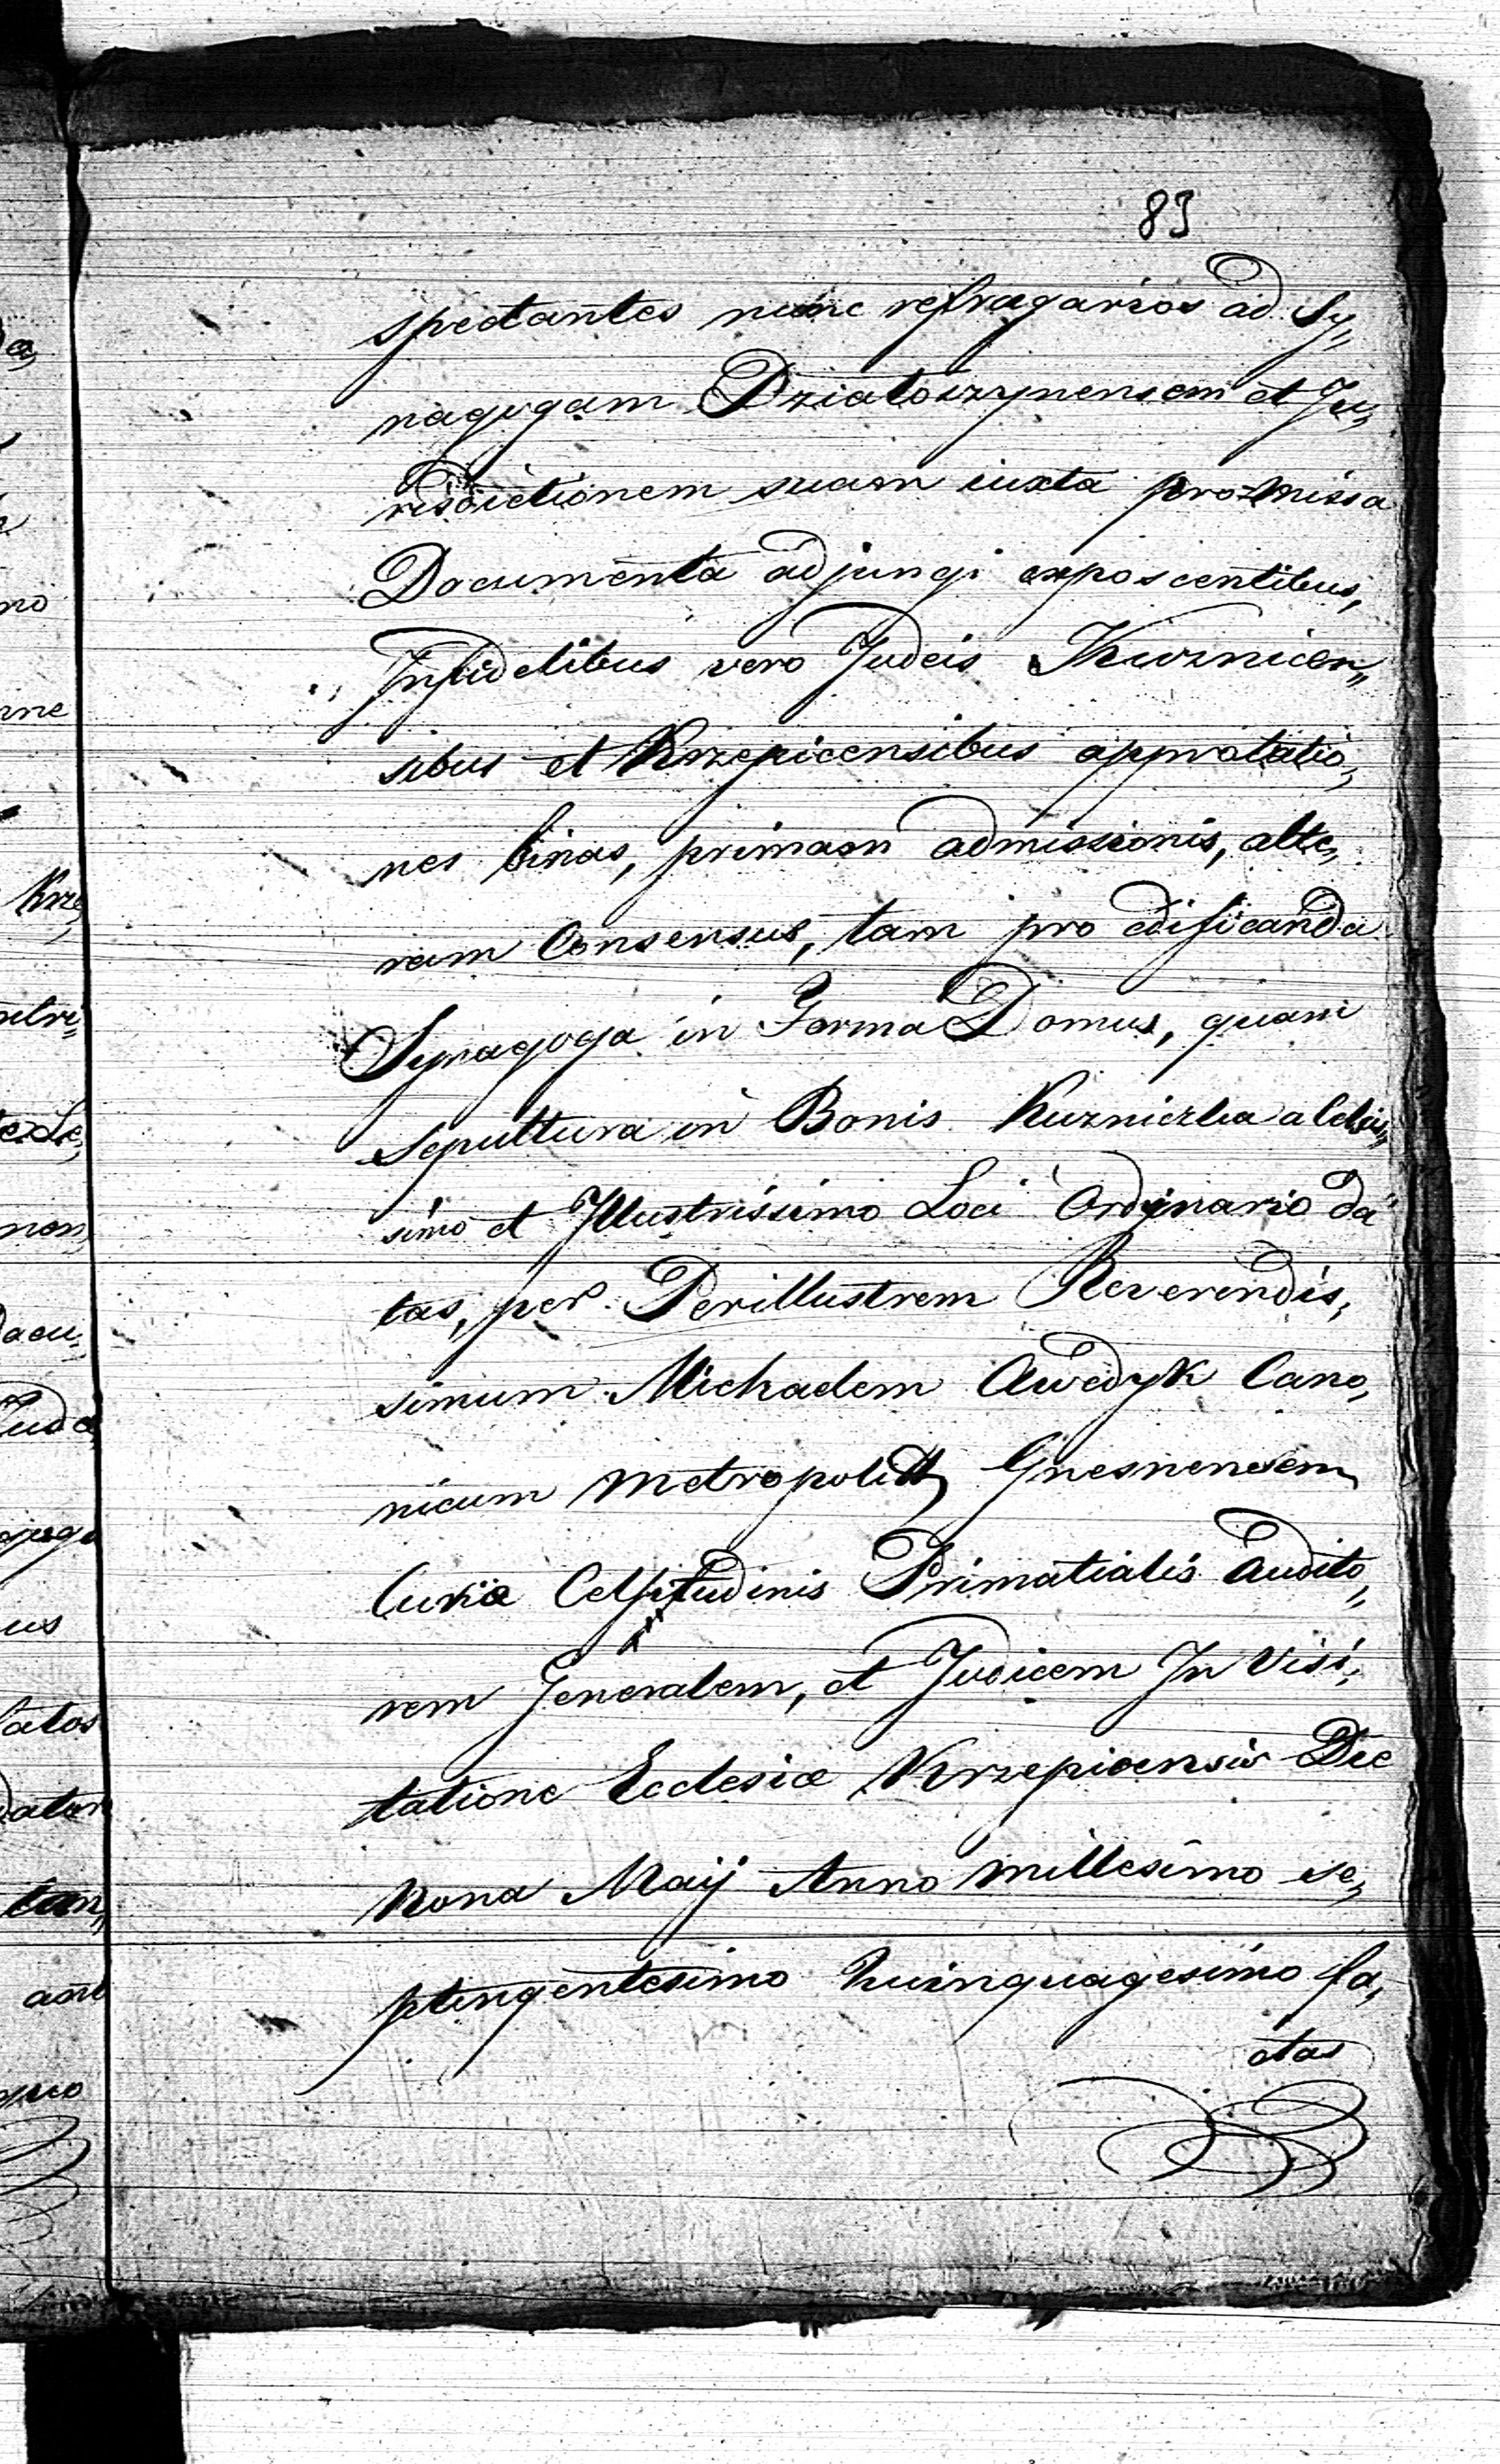 83
spectantes nunc refragarios ad Sy„
nagogam Dziatoszynensem et Ju„
risdictionem suam iuxta prozmissa
Documenta adjungi exposcentibus,
Infidelibus vero Judeis Kuznicen„
sibus et Krzepicensibus approbatio„
nes binas, primam admissionis, alte„
ram Consensus, tam pro edificanda
Synagoga in Forma Domus, quam
Sepultura in Bonis Kuzniczka a Celsis„
simo et Illustrissimo Loci Ordynario da„
tas, per Perillustrem Reverendis„
simum Michaelem Awedyk Cano„
nicum Metropolitt Gnesnensem
Curiæ Celsitudinis Primatialis Audito„
rem Jeneralem, et Judicem In Visi„
tatione Ecclesiæ Krzepicensis Die
Nona Maij Anno millesimo se„
ptingentesimo Quinquagesimo fa„
ctas
Krze„
non
us
quo